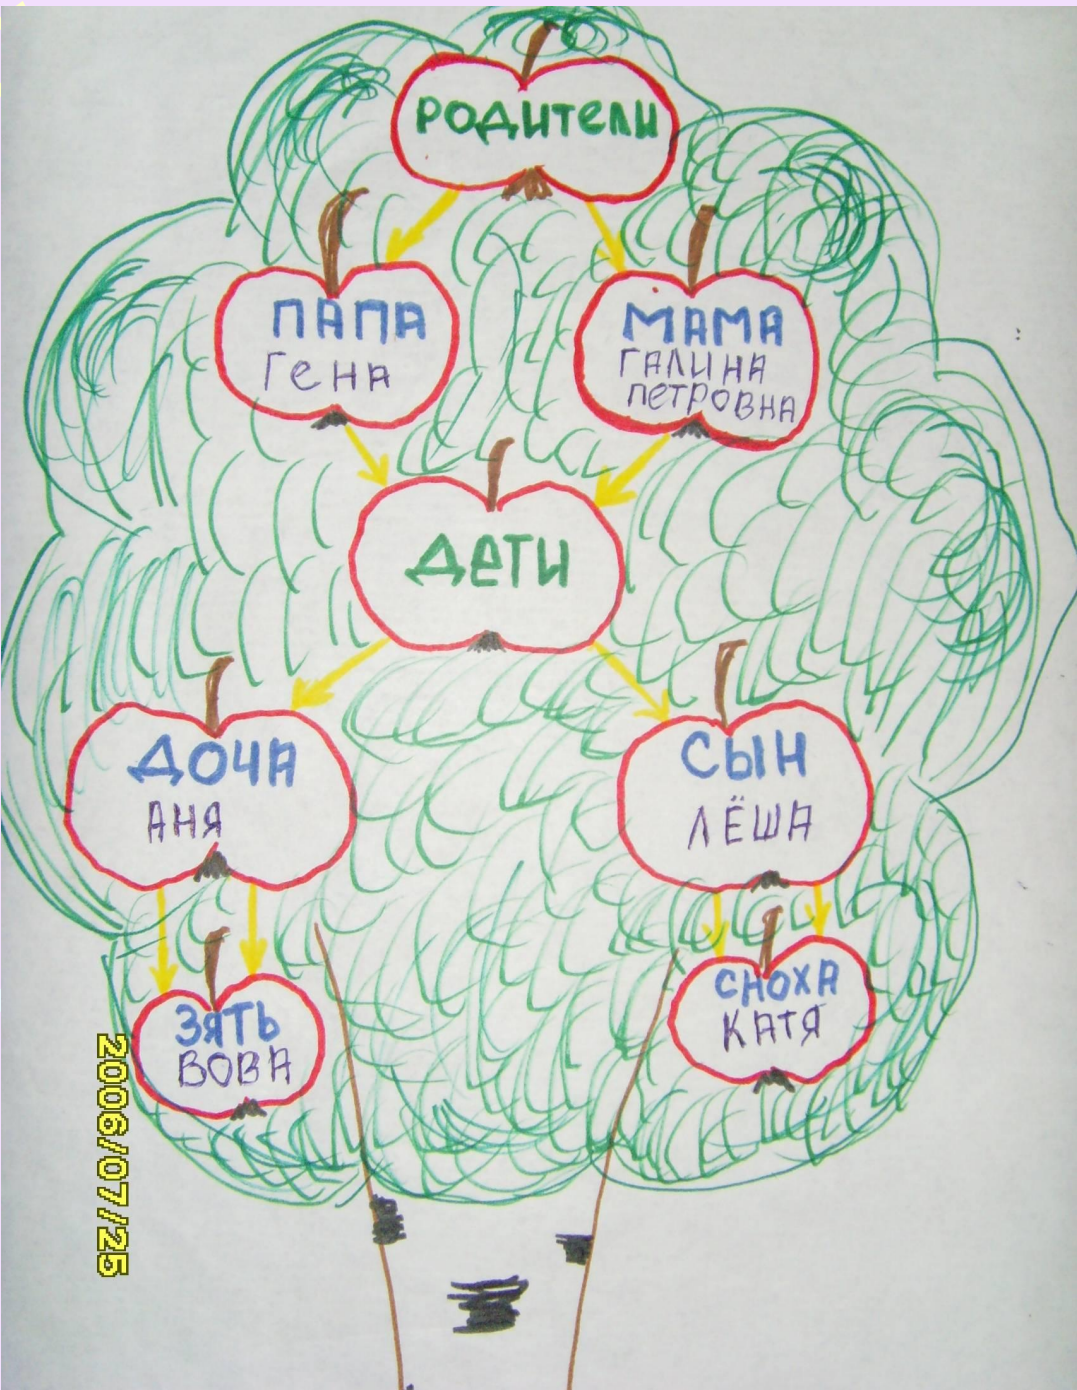 РОДИТЕЛИ
ПАПА
ГЕНА
МАМА
ГАЛИНА
ПЕТРОВНА
ДЕТИ
ДОЧА
АНЯ
СЫН
ЛЁША
ЗЯТЬ
ВОВА
СНОХА
КАТЯ
2006/07/25